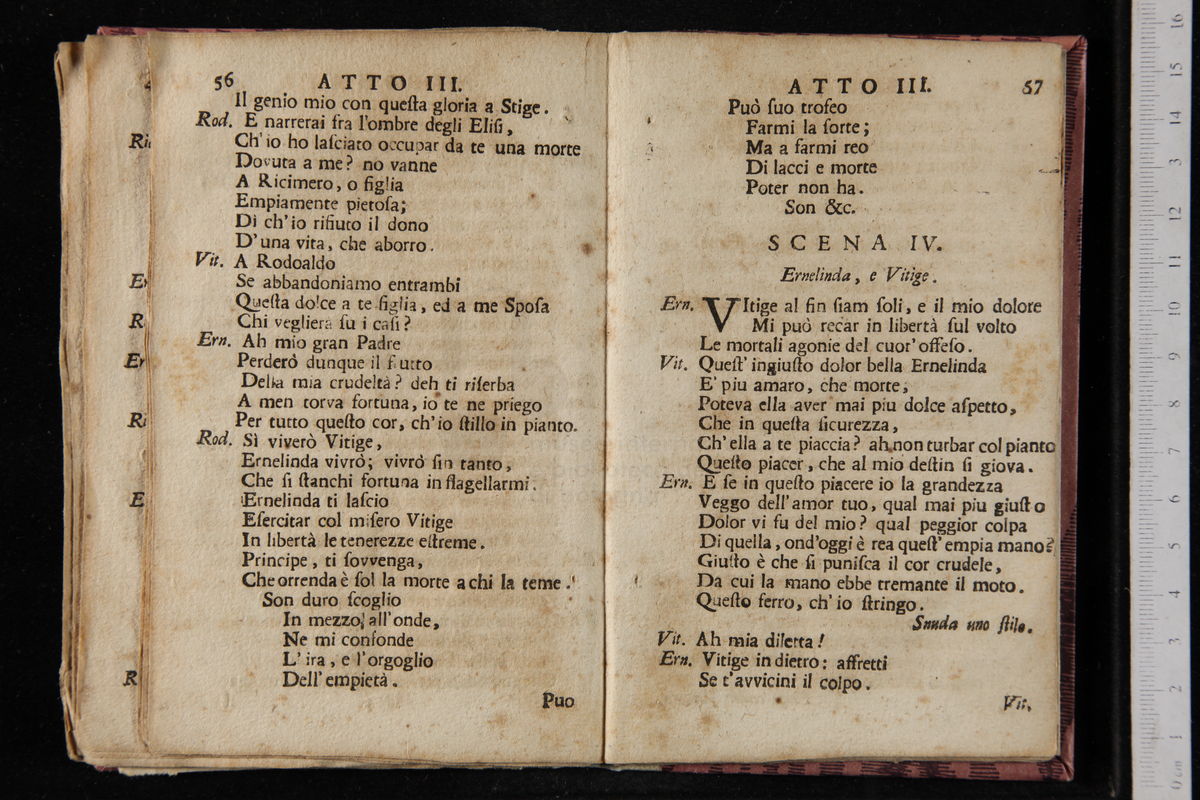 56 ATTO III.
Il genio mio con queſta gloria a Stige.
Rod. E narrerai fra l'ombre degli Eliſi,
Ch'io ho laſciato occupar da te una morte
Dovuta a me? no vanne
A Ricimero, o figlia
Empiamente pietoſa;
Dì ch'io rifiuto il dono
D'una vita, che aborro.
Vit. A Rodoaldo
Se abbandoniamo entrambi
Queſta dolce a te figlia, ed a me Spoſa
Chi veglierà ſu i caſi?
Ern. Ah mio gran Padre
Perderò dunque il frutto
Della mia crudeltà? deh ti riſerba
A men torva fortuna, io te ne priego
Per tutto queſto cor, ch'io ſtillo in pianto.
Rod. Sì viverò Vitige,
Ernelinda vivrò; vivrò ſin tanto,
Che ſi ſtanchi fortuna in flagellarmi.
Ernelinda ti laſcio
Eſercitar col miſero Vitige
In libertà le tenerezze eſtreme.
Principe, ti ſovvenga,
Che orrenda è ſol la morte a chi la teme.
Son duro ſcoglio
In mezzo all'onde,
Ne mi confonde
L'ira, e l'orgoglio
Dell'empietà.
Puo
ATTO III. 57
Può ſuo trofeo
Farmi la ſorte;
Ma a farmi reo
Di lacci e morte
Poter non ha.
Son &c.
SCENA IV.
Ernelinda, e Vitige.
Ern. VItige al fin ſiam ſoli, e il mio dolore
Mi può recar in libertà ſul volto
Le mortali agonie del cuor'offeſo.
Vit. Queſt'ingiuſto dolor bella Ernelinda
E' piu amaro, che morte,
Poteva ella aver mai piu dolce aſpetto,
Che in queſta ſicurezza,
Ch'ella a te piaccia? ah non turbar col pianto
Queſto piacer, che al mio deſtin ſi giova.
Ern. E ſe in queſto piacere io la grandezza
Veggo dell'amor tuo, qual mai piu giuſto
Dolor vi fu del mio? qual peggior colpa
Di quella, ond'oggi è rea queſt'empia mano?
Giuſto è che ſi puniſca il cor crudele,
Da cui la mano ebbe tremante il moto.
Queſto ferro, ch'io ſtringo.
Snuda uno ſtile.
Vit. Ah mia diletta!
Ern. Vitige indietro: affretti
Se t'avvicini il colpo.
Vit.